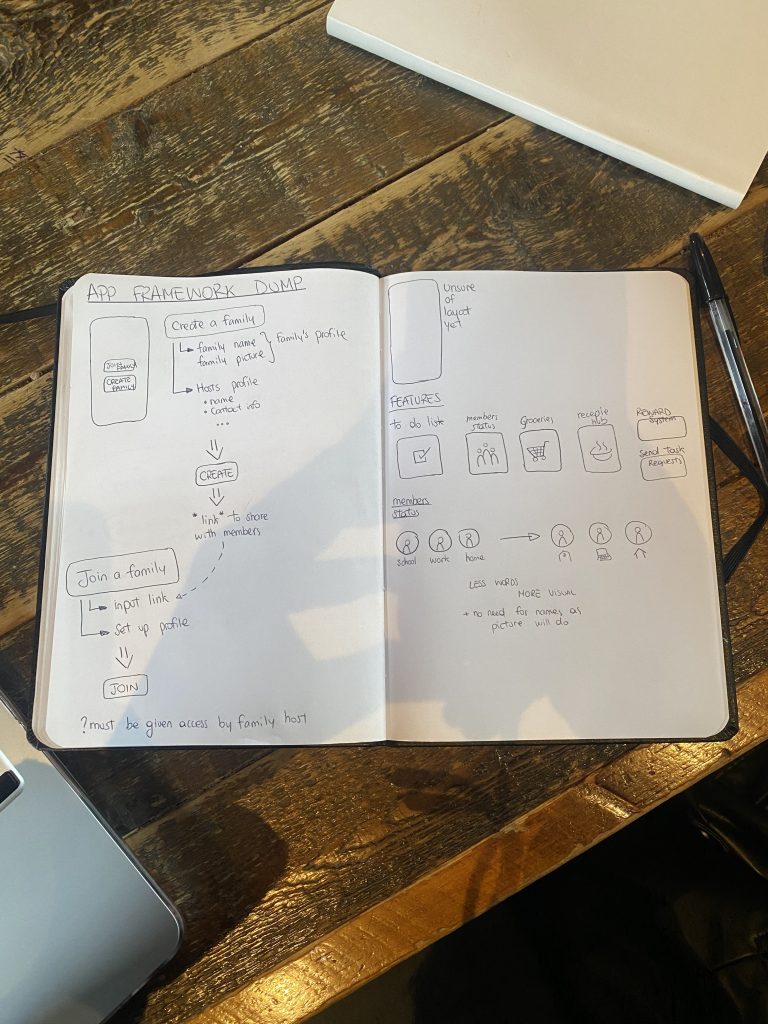 APP FRAMEWORK DUMP
JOIN FAMILY
CREATE FAMILY
Create a family
family name
family picture
Family's profile
Hosts profile
• name
• Contact info
...
CREATE
"link" to share
with members
Join a family
Input link
Set up profile
JOIN
? must be given access by family host
Unsure
of
layout
yet
FEATURES
to do list
members
status
Groceries
recepie
hub
REWARD
System
Send Task
REQUESTS
members
status
School
work
home
LESS WORDS
MORE VISUAL
+ no need for names as
picture will do